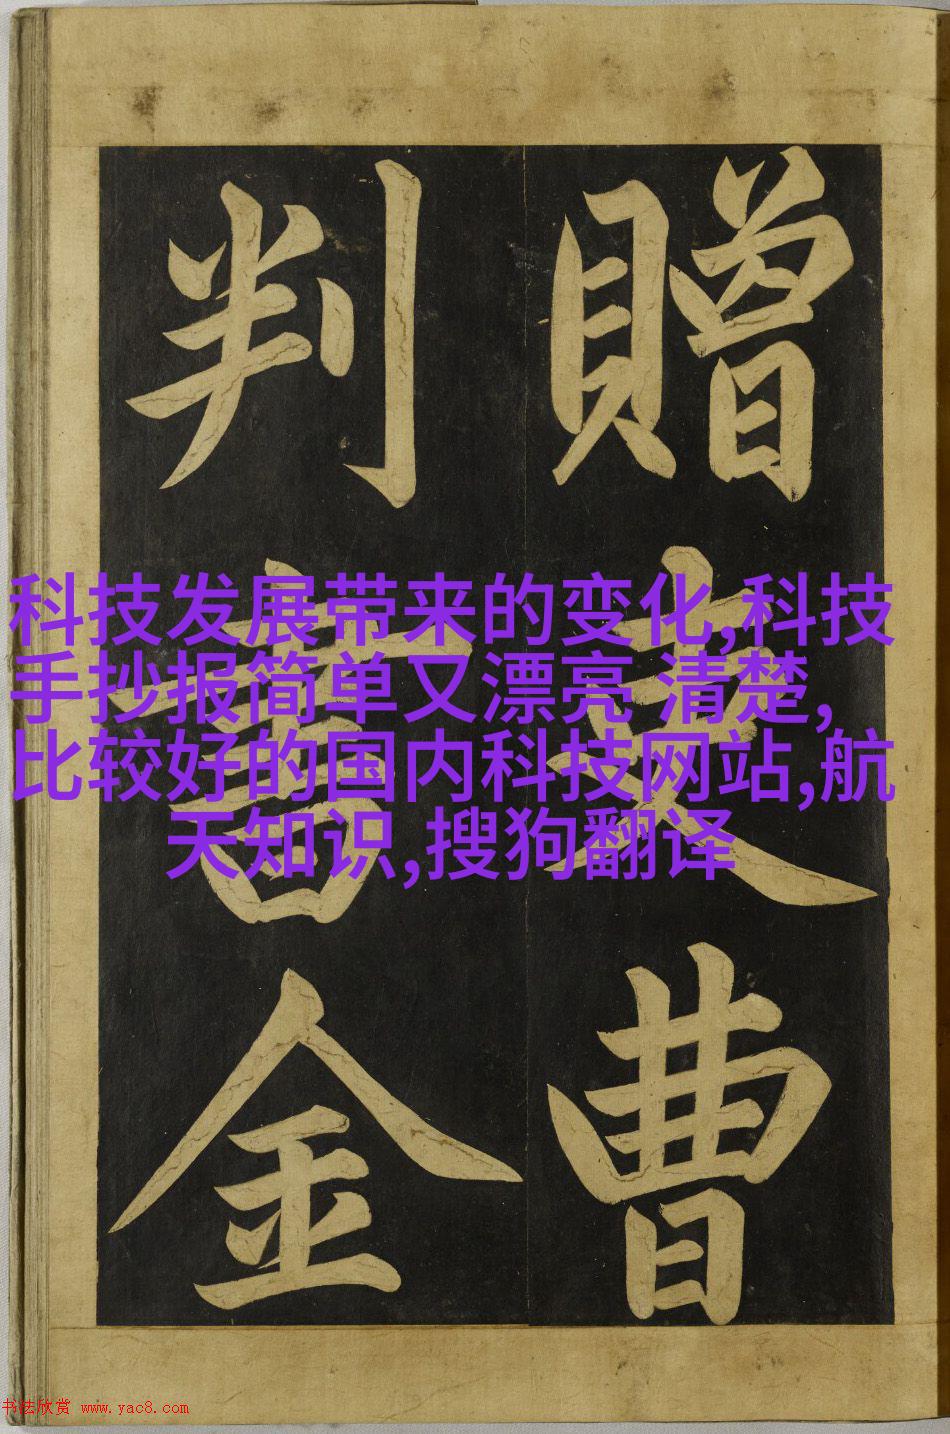 贈吏曹
判書金
科技发展带来的变化,科技
手抄报简单又漂亮 清楚,
比较好的国内科技网站,航
天知识,搜狗翻译
书法欣赏 www.yac8.com